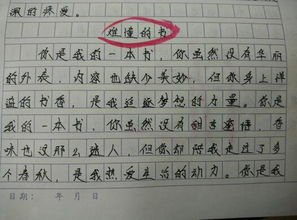 溺的疼爱。
难懂的书
你是我的一本书，你虽然没有华丽
的外表，内容也缺少美妙，但你身上洋
溢的书香，是我延续梦想的力量。你是
我的一本书，你虽然没有甜言蜜语，香
味也没那么迷人，但你却陪我走过了多
个春秋，是我热爱生活的动力。你是我
日期： 年 月 日